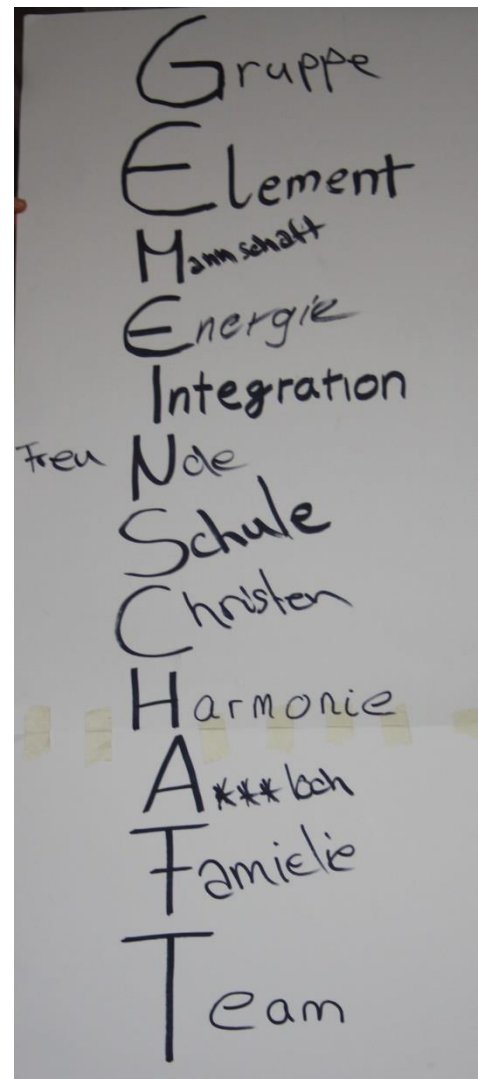 Gruppe
Element
Mannschaft
Energie
Integration
FreuNde
Schule
Christen
Harmonie
A***loch
Famielie
Team